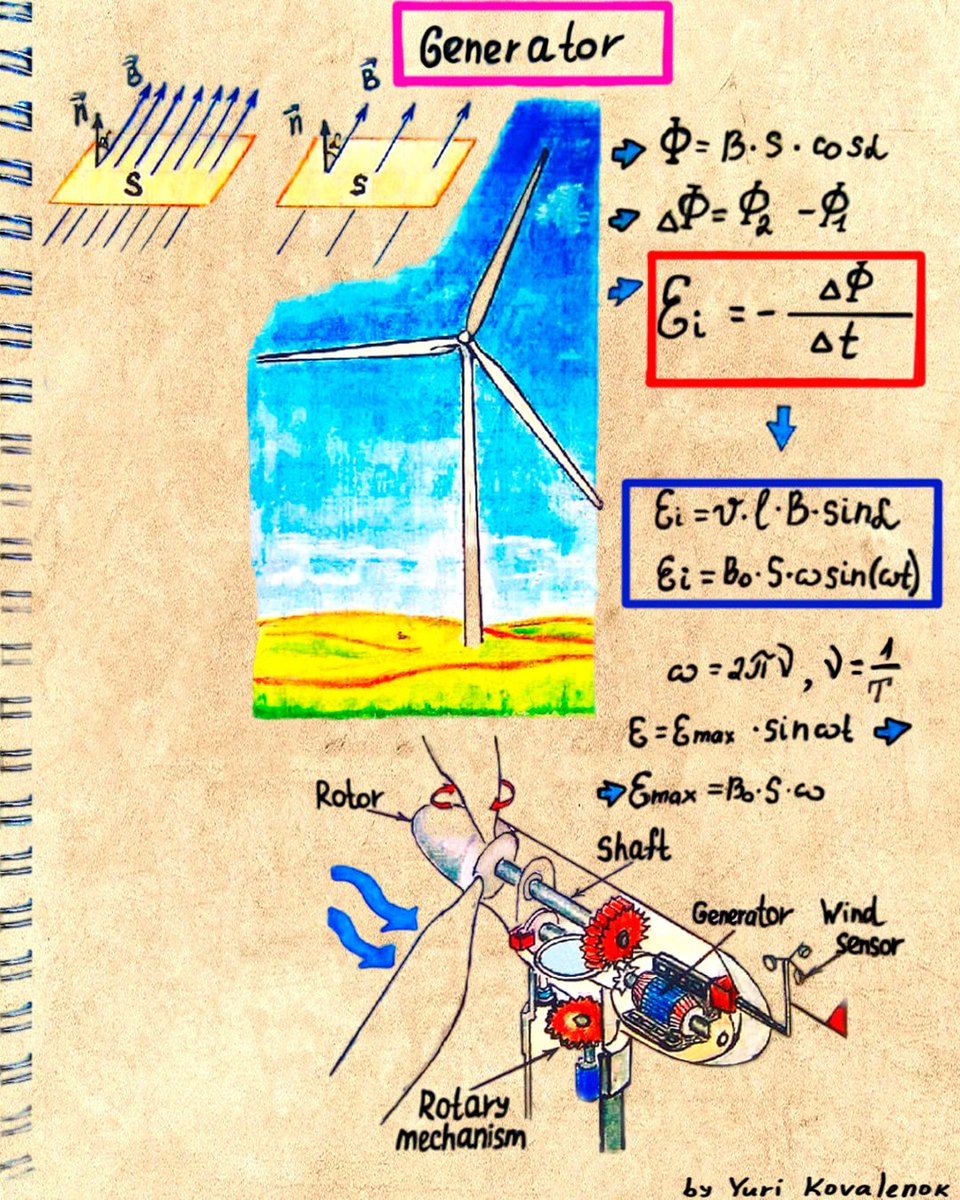 Generator
B⃗
n⃗
α
S
B⃗
n⃗
α
S
Φ = B · S · cosα
ΔΦ = Φ₂ - Φ₁
Ɛi = - ΔΦ / Δt
Ɛi = v · l · B · sinα
Ɛi = B₀ · S · ω sin(ωt)
ω = 2πν, ν = 1/T
Ɛ = Ɛmax · sinωt
Ɛmax = B₀ · S · ω
Rotor
Shaft
Generator
Wind
sensor
Rotary
mechanism
by Yuri Kovalenok